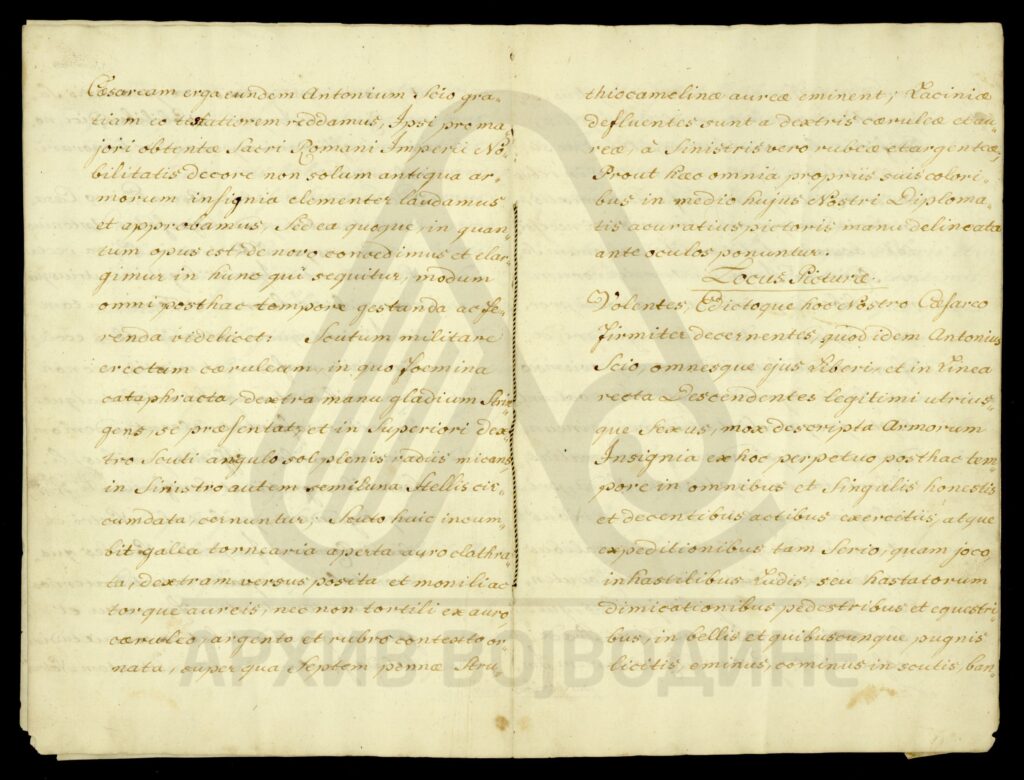 Cæsaream erga eundem Antonium Scio gra-
tiam eo testatiorem reddamus, Ipsi pro ma-
jori obtentæ Sacri Romani Imperii No-
bilitatis decore non solum antiqua ar-
morum insignia clementer laudamus
et approbamus, Sed ea quoque, in quan-
tum opus est, de novo concedimus et elar-
gimur in hunc qui sequitur, modum
omni posthac tempore gestanda ac fe-
renda videlicet: Scutum militare
erectum cæruleum, in quo foemina
cataphracta, dextra manu gladium strin-
gens, se præsentat, et in Superiori dex-
tro Scuti angulo sol plenis radiis micans
in Sinistro autem semiluna stellis cir-
cumdata, cernuntur; Scuto huic incum-
bit galea tornearia aperta auro clathra-
ta, dextram versus posita et monili ac
torque aureis, nec non tortili ex auro
cæruleo, argento et rubro contexto or-
nata, super qua Septem pennæ Stru-
thiocamelinæ aureæ eminent; Laciniæ
defluentes sunt a dextris cæruleæ et au-
reæ, à Sinistris vero rubeæ et argenteæ,
Prout hæc omnia propriis suis colori-
bus in medio hujus Nostri Diploma-
tis acuratius pictoris manu delineata
ante oculos ponuntur.
Locus Picturæ.
Volentes, Edictoque hoc Nostro Cæsareo
firmiter decernentes, quod idem Antonius
Scio, omnesque ejus Liberi, et in Linea
recta Descendentes legitimi utrius-
que Sexus, mox descripta Armorum
Insignia ex hoc perpetuo posthac tem-
pore in omnibus et Singulis honestis
et decentibus actibus exercitiis, atque
expeditionibus tam Serio, quam joco,
in hastilibus Ludis, seu hastatorum
dimicationibus pedestribus et equestri-
bus, in bellis et quibuscunque pugnis
licitis, eminus, cominus in scutis, ban-
АРХИВ ВОЈВОДИНЕ